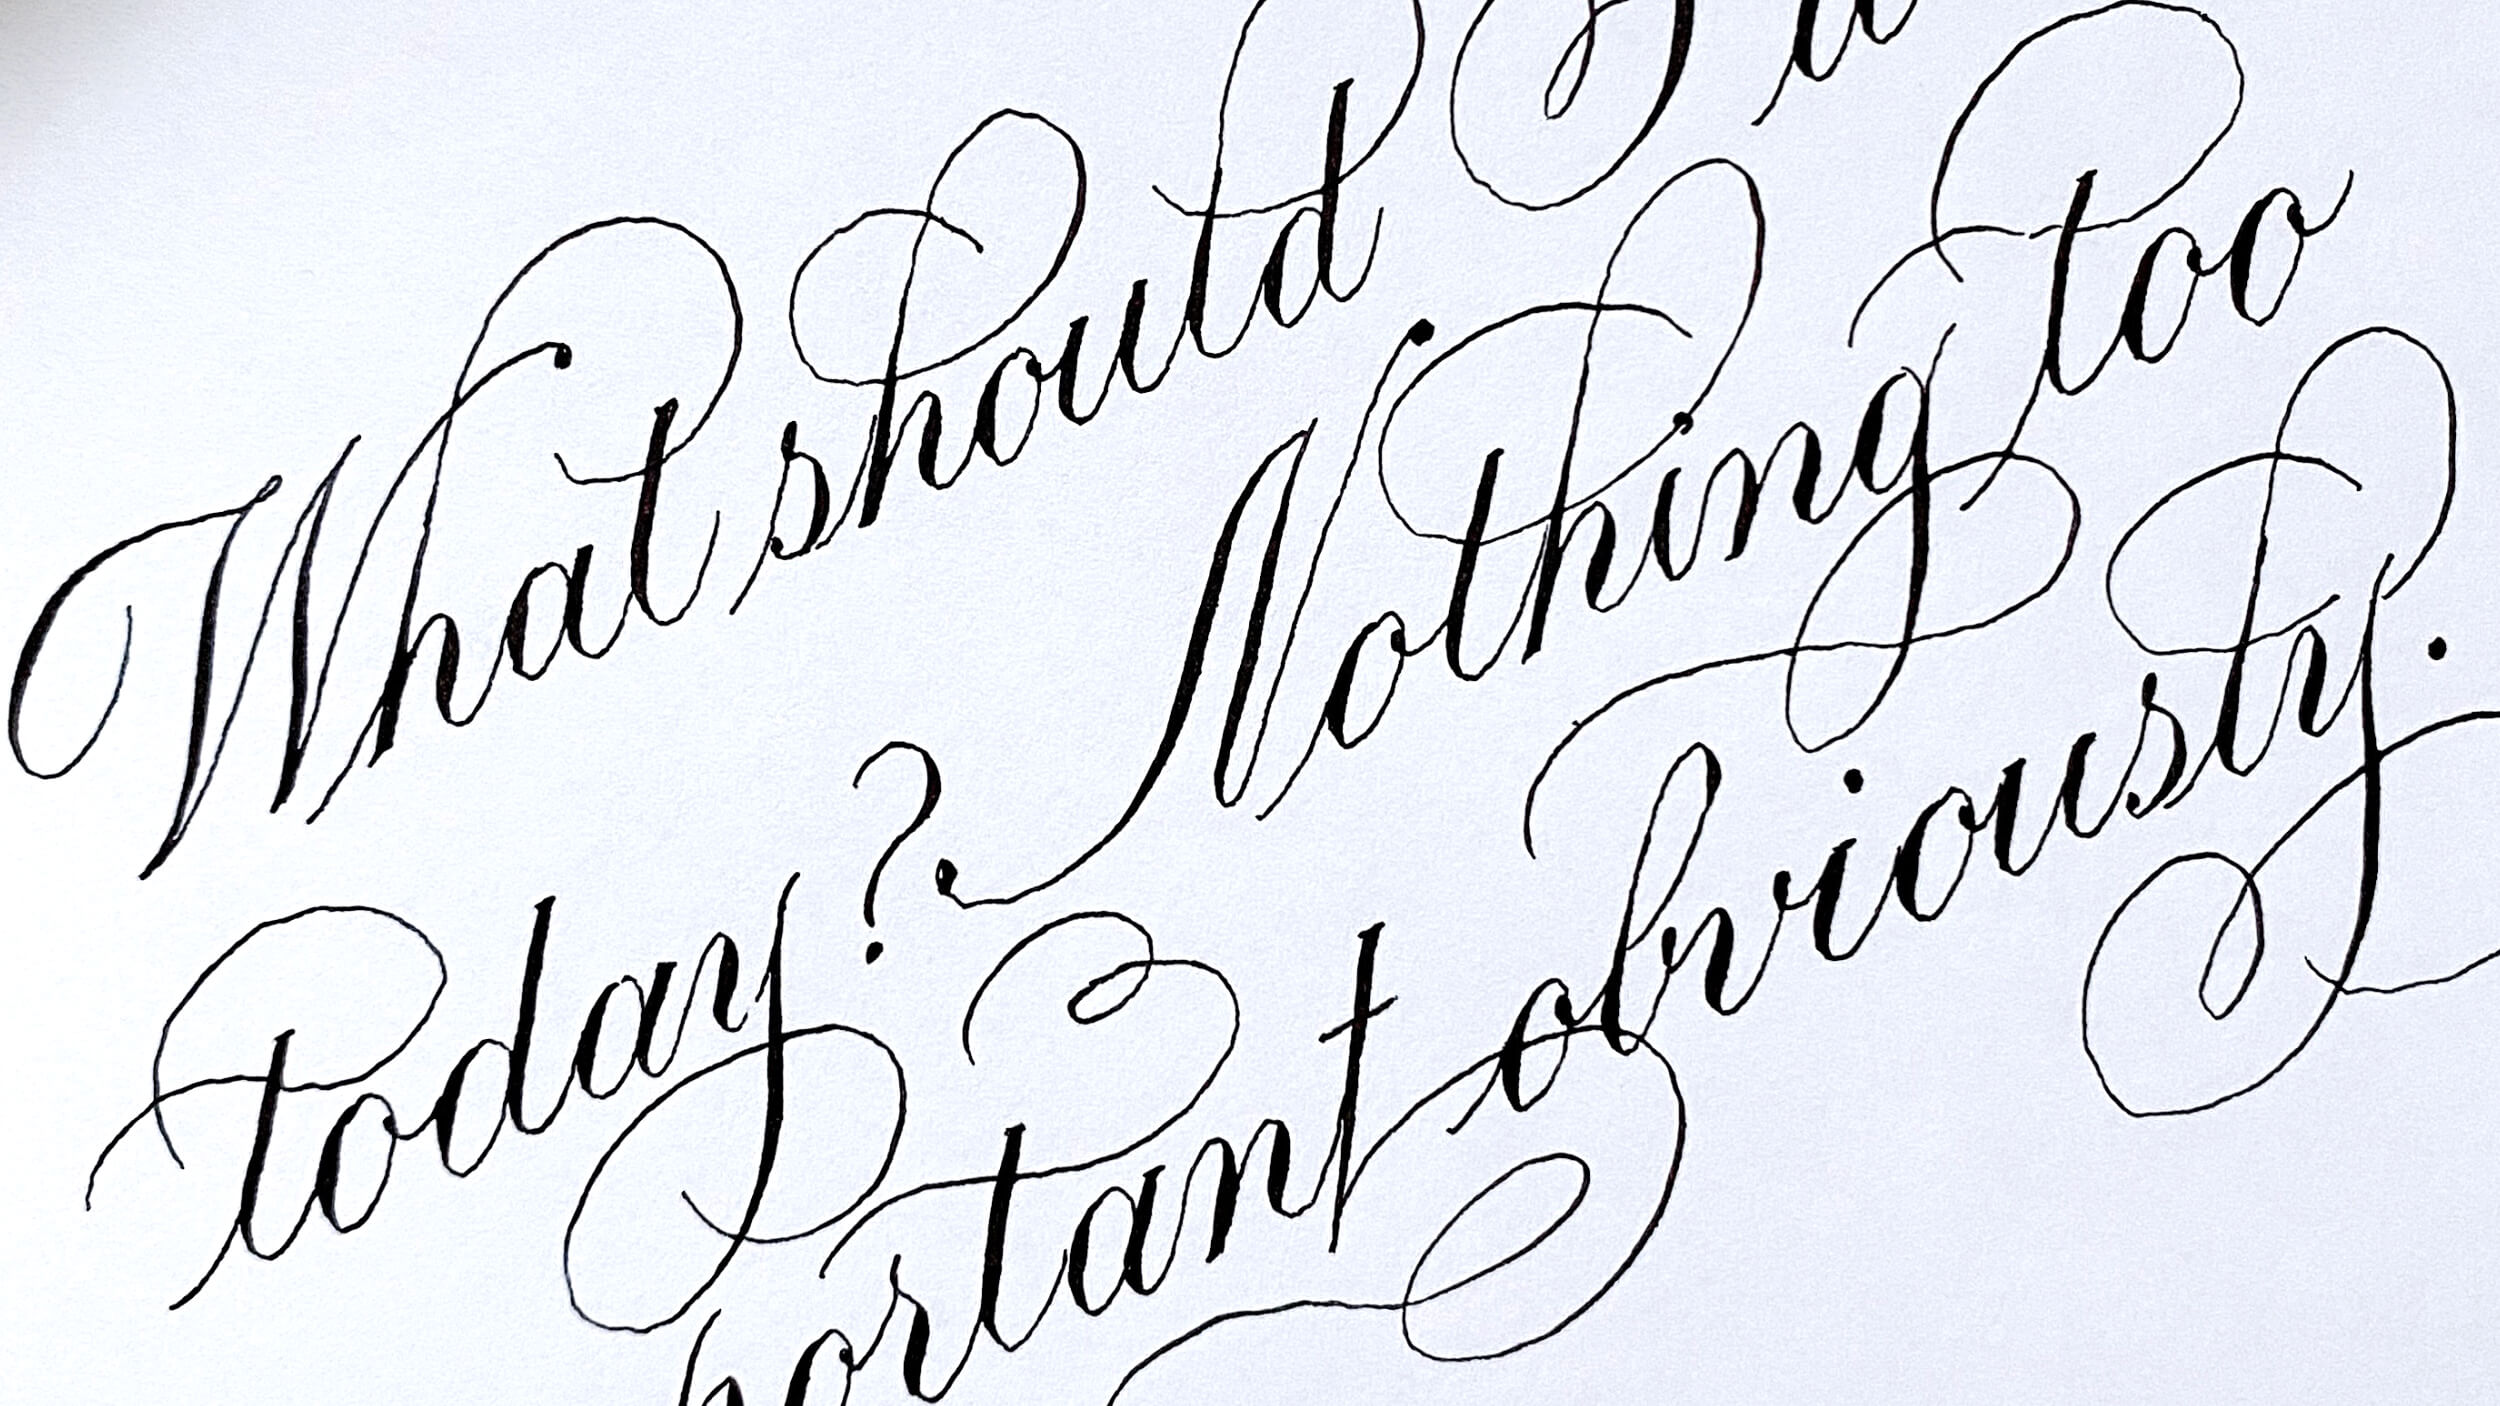 What should I
today? Nothing too
portant obviously.